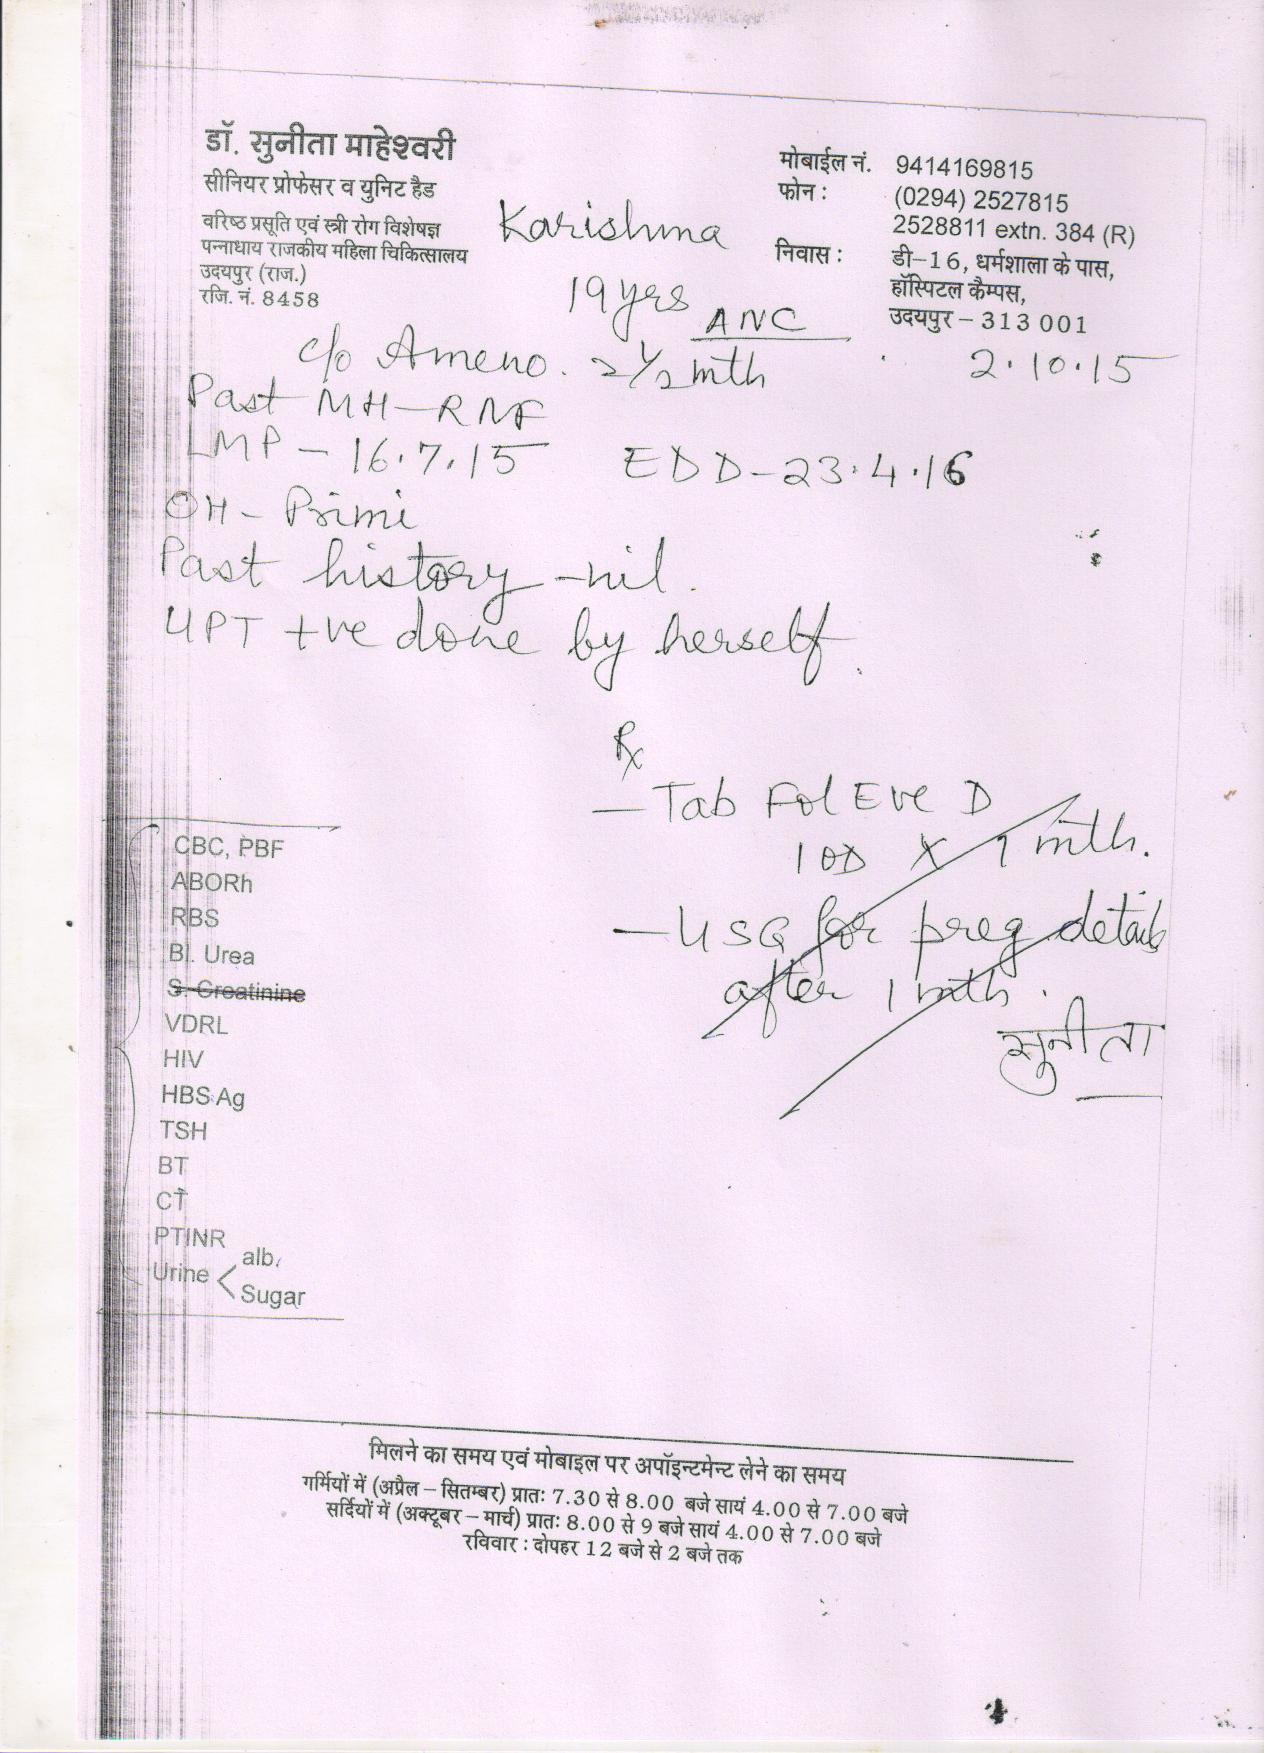 डॉ. सुनीता माहेश्वरी
सीनियर प्रोफेसर व युनिट हैड
वरिष्ठ प्रसूति एवं स्त्री रोग विशेषज्ञ
पन्नाधाय राजकीय महिला चिकित्सालय
उदयपुर (राज.)
रजि. नं. 8458
मोबाईल नं. 9414169815
फोन : (0294) 2527815
2528811 extn. 384 (R)
निवास : डी-16, धर्मशाला के पास,
हॉस्पिटल कैम्पस,
उदयपुर - 313 001
Karishma
19 yrs
ANC
2.10.15
c/o Ameno. 2½ mth
Past MH-RNF
LMP - 16.7.15 EDD-23.4.16
OH - Primi
Past history -nil.
UPT +ve done by herself.
Rx
- Tab Fol Eve D
1 OD X 1 mth.
- USG for preg details
after 1 mth.
सुनीता
CBC, PBF
ABORh
RBS
Bl. Urea
S. Creatinine
VDRL
HIV
HBSAg
TSH
BT
CT
PTINR
Urine < alb.
Sugar
मिलने का समय एवं मोबाइल पर अपॉइन्टमेन्ट लेने का समय
गर्मियों में (अप्रैल - सितम्बर) प्रातः 7.30 से 8.00 बजे सायं 4.00 से 7.00 बजे
सर्दियों में (अक्टूबर - मार्च) प्रातः 8.00 से 9 बजे सायं 4.00 से 7.00 बजे
रविवार : दोपहर 12 बजे से 2 बजे तक